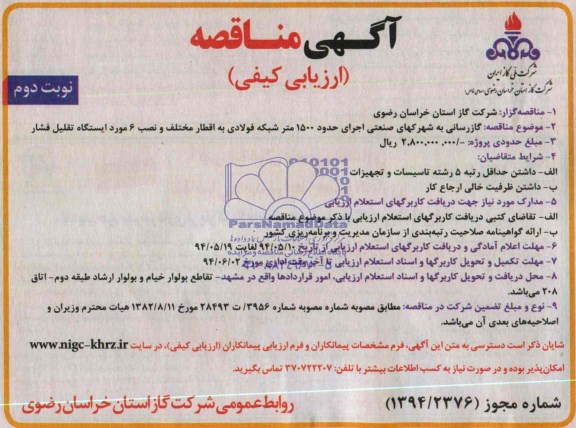 آگهی مناقصه
(ارزیابی کیفی)
نوبت دوم
شرکت ملی گاز ایران
شرکت گاز استان خراسان رضوی (سهامی خاص)
۱- مناقصه‌گزار: شرکت گاز استان خراسان رضوی
۲- موضوع مناقصه: گازرسانی به شهرکهای صنعتی اجرای حدود ۱۵۰۰ متر شبکه فولادی به اقطار مختلف و نصب ۶ مورد ایستگاه تقلیل فشار
۳- مبلغ حدودی پروژه: ۲.۸۰۰.۰۰۰.۰۰۰/- ریال
۴- شرایط متقاضیان:
الف- داشتن حداقل رتبه ۵ رشته تاسیسات و تجهیزات
ب- داشتن ظرفیت خالی ارجاع کار
۵- مدارک مورد نیاز جهت دریافت کاربرگهای استعلام ارزیابی
الف- تقاضای کتبی دریافت کاربرگهای استعلام ارزیابی با ذکر موضوع مناقصه
ب- ارائه گواهینامه صلاحیت رتبه‌بندی از سازمان مدیریت و برنامه‌ریزی کشور
۶- مهلت اعلام آمادگی و دریافت کاربرگهای استعلام ارزیابی از تاریخ ۹۴/۰۵/۱۰ لغایت ۹۴/۰۵/۱۹
۷- مهلت تکمیل و تحویل کاربرگها و اسناد استعلام ارزیابی تا آخر وقت اداری مورخ ۹۴/۰۶/۰۲
۸- محل دریافت و تحویل کاربرگها و اسناد استعلام ارزیابی، امور قراردادها واقع در مشهد- تقاطع بولوار خیام و بولوار ارشاد طبقه دوم- اتاق
۲۰۸ می‌باشد.
۹- نوع و مبلغ تضمین شرکت در مناقصه: مطابق مصوبه شماره مصوبه شماره ۳۹۵۶/ت ۲۸۴۹۳ مورخ ۱۳۸۲/۸/۱۱ هیات محترم وزیران و
اصلاحیه‌های بعدی آن می‌باشد.
شایان ذکر است دسترسی به متن این آگهی، فرم مشخصات پیمانکاران و فرم ارزیابی پیمانکاران (ارزیابی کیفی)، در سایت www.nigc-khrz.ir
امکان‌پذیر بوده و در صورت نیاز به کسب اطلاعات بیشتر با تلفن: ۳۷۰۷۲۲۰۷ تماس بگیرید.
شماره مجوز (۱۳۹۴/۲۳۷۶)
روابط عمومی شرکت گاز استان خراسان رضوی
ParsNamadData